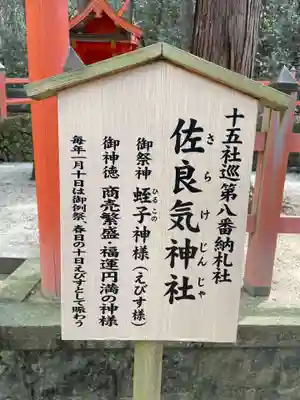 十五社巡第八番納札社
佐良気神社
さらけじんじゃ
御祭神 蛭子神様(えびす様)
ひるこのかみ
御神徳 商売繁盛・福運円満の神様
毎年一月十日は御例祭、春日の十日えびすとして賑わう